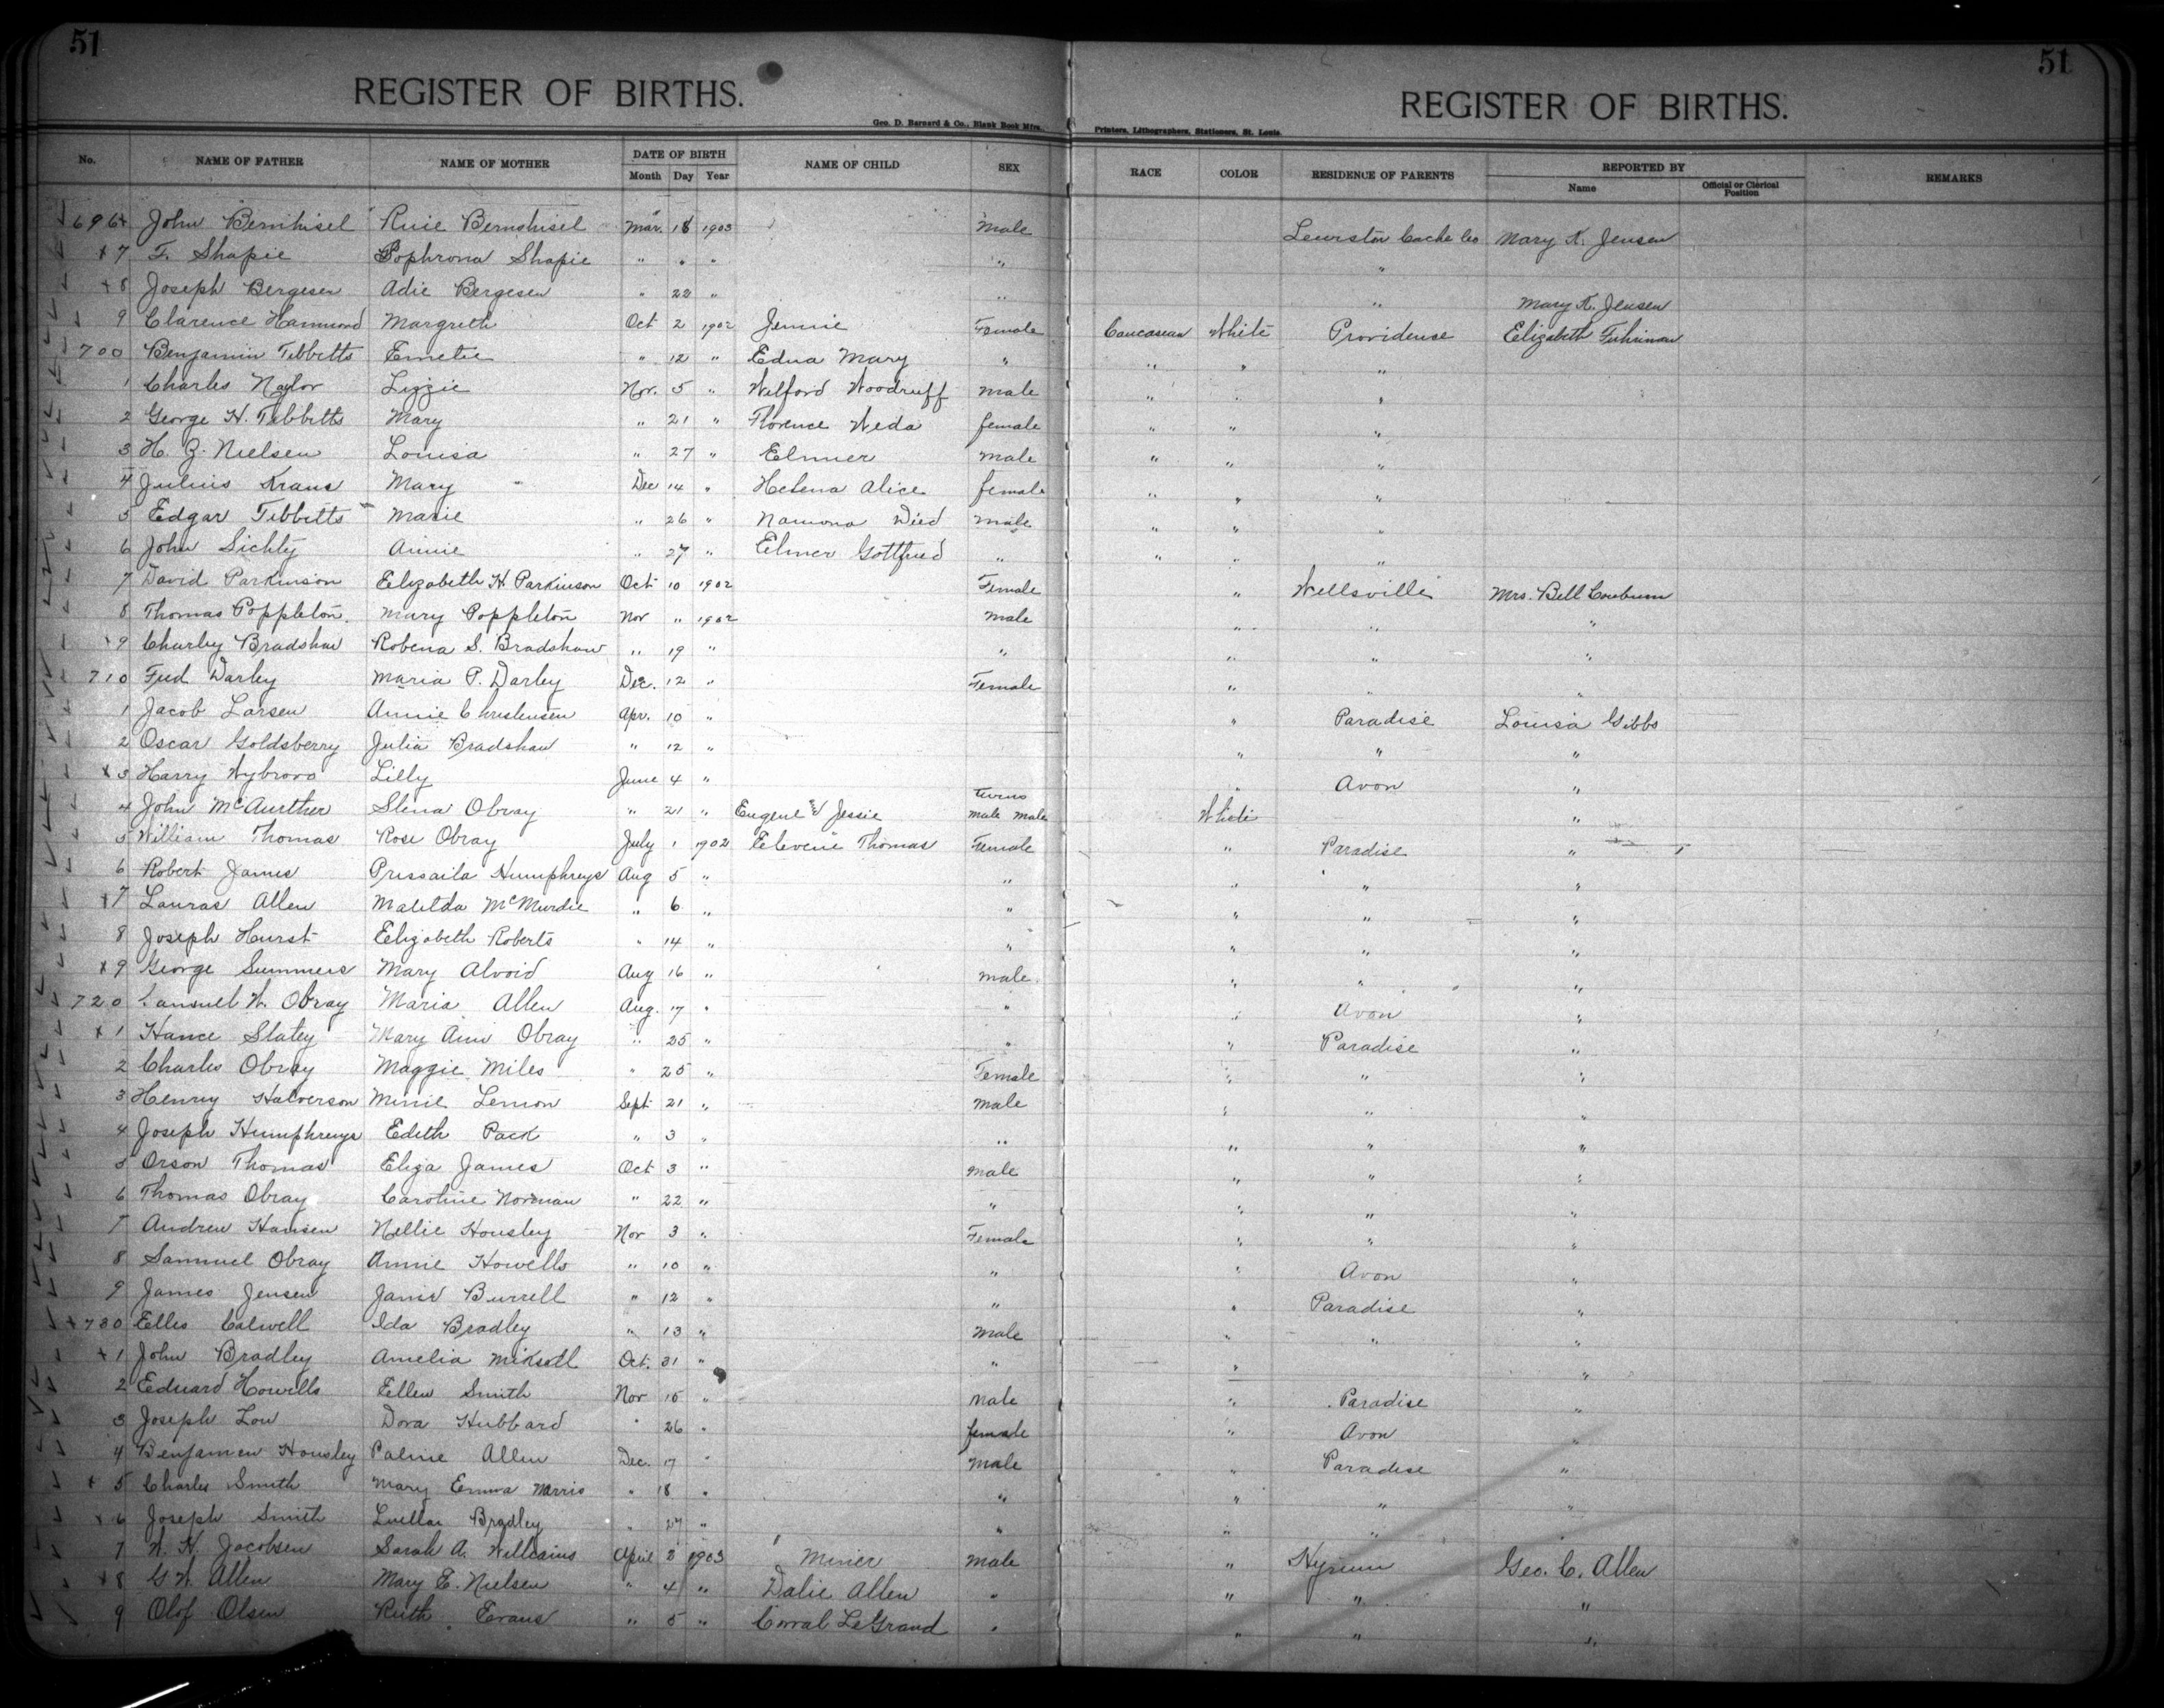 51
51
REGISTER OF BIRTHS.
REGISTER OF BIRTHS.
Geo. D. Barnard & Co., Blank Book Mfrs.,
Printers, Lithographers, Stationers, St. Louis.
No. NAME OF FATHER NAME OF MOTHER DATE OF BIRTH NAME OF CHILD SEX RACE COLOR RESIDENCE OF PARENTS REPORTED BY REMARKS
Month Day Year Name Official or Clerical Position
696 John Bernhisel Ruie Bernohisel Mar. 18 1903 Male Lewiston Cache Co Mary K. Jensen
7 F. Shapie Sophrona Shapie " " " " "
8 Joseph Bergesen Adie Bergesen " 22 " " " Mary K. Jensen
9 Clarence Hammond Margreth Oct 2 1902 Jennie Female Caucasean White Providense Elizabeth Fuhriman
700 Benjamin Tibbitts Emelie " 12 " Edna Mary " " " "
1 Charles Naylor Lizzie Nov. 5 " Wilford Woodruff male " " "
2 George H. Tibbitts Mary " 21 " Florence Weda female " " "
3 H. Z. Nielsen Louisa " 27 " Elmer male " " "
4 Julius Kraus Mary Dec 14 " Helena Alice female " " "
5 Edgar Tibbitts Marie " 26 " Namona Wied male " " "
6 John Sichty Annie " 27 " Elmer Gottfried " " " "
7 David Parkinson Elizabeth H. Parkinson Oct 10 1902 Female " Wellsville Mrs. Bell Cowburn
8 Thomas Poppleton. Mary Poppleton Nov " 1902 male " " "
9 Charley Bradshaw Robena S. Bradshaw " 19 " " " " "
710 Fred Darley Maria P. Darley Dec. 12 " Female " " "
1 Jacob Larsen Annie Christensen Apr. 10 " " Paradise Louisa Gibbs
2 Oscar Goldsberry Julia Bradshaw " 12 " " " "
3 Harry Wybrovo Lilly June 4 " " Avon "
4 John McAurther Slena Obray " 21 " Eugene and Jessie twins male male White "
5 William Thomas Rose Obray July 1 1902 Elevene Thomas Female " Paradise "
6 Robert James Prissaila Humphreys Aug 5 " " " " "
7 Lauras Allen Matilda McMurdie " 6 " " " " "
8 Joseph Hurst Elizabeth Roberts " 14 " " " " "
9 George Summers Mary Alvoid Aug 16 " male. " " "
720 Samuel W. Obray Maria Allen Aug. 17 " " " Avon "
1 Hance Slatey Mary Ann Obray " 25 " " " Paradise "
2 Charles Obray Maggie Miles " 25 " Female " " "
3 Henry Halverson Minie Lemon Sept 21 " male " " "
4 Joseph Humphreys Edith Pack " 3 " " " " "
5 Orson Thomas Eliza James Oct 3 " male " " "
6 Thomas Obray Caroline Norman " 22 " " " " "
7 Andrew Hansen Nellie Housley Nov 3 " Female " " "
8 Sammuel Obray Annie Howells " 10 " " " Avon "
9 James Jensen Janie Burrell " 12 " " " Paradise "
730 Elles Calwell Ida Bradley " 13 " male " " "
1 John Bradley Amelia Oct. 31 " " " "
2 Eduard Howells Ellen Smith Nov 15 " male " Paradise "
3 Joseph Low Dora Hubbard " 26 " female " Avon "
4 Benjamen Housley Paline Allen Dec. 17 " male " Paradise "
5 Charles Smith Mary Emma Norris " 18 " " " " "
6 Joseph Smith Luellar Bradley " 27 " " " "
7 W. H. Jacobsen Sarah A. Williams April 2 1903 Minier male " Hyrum Geo. C. Allen
8 G W. Allen Mary E. Nielsen " 4 " Dalie Allen " " " "
9 Olof Olsen Ruth Evans " 5 " Corral LeGrand " " " "